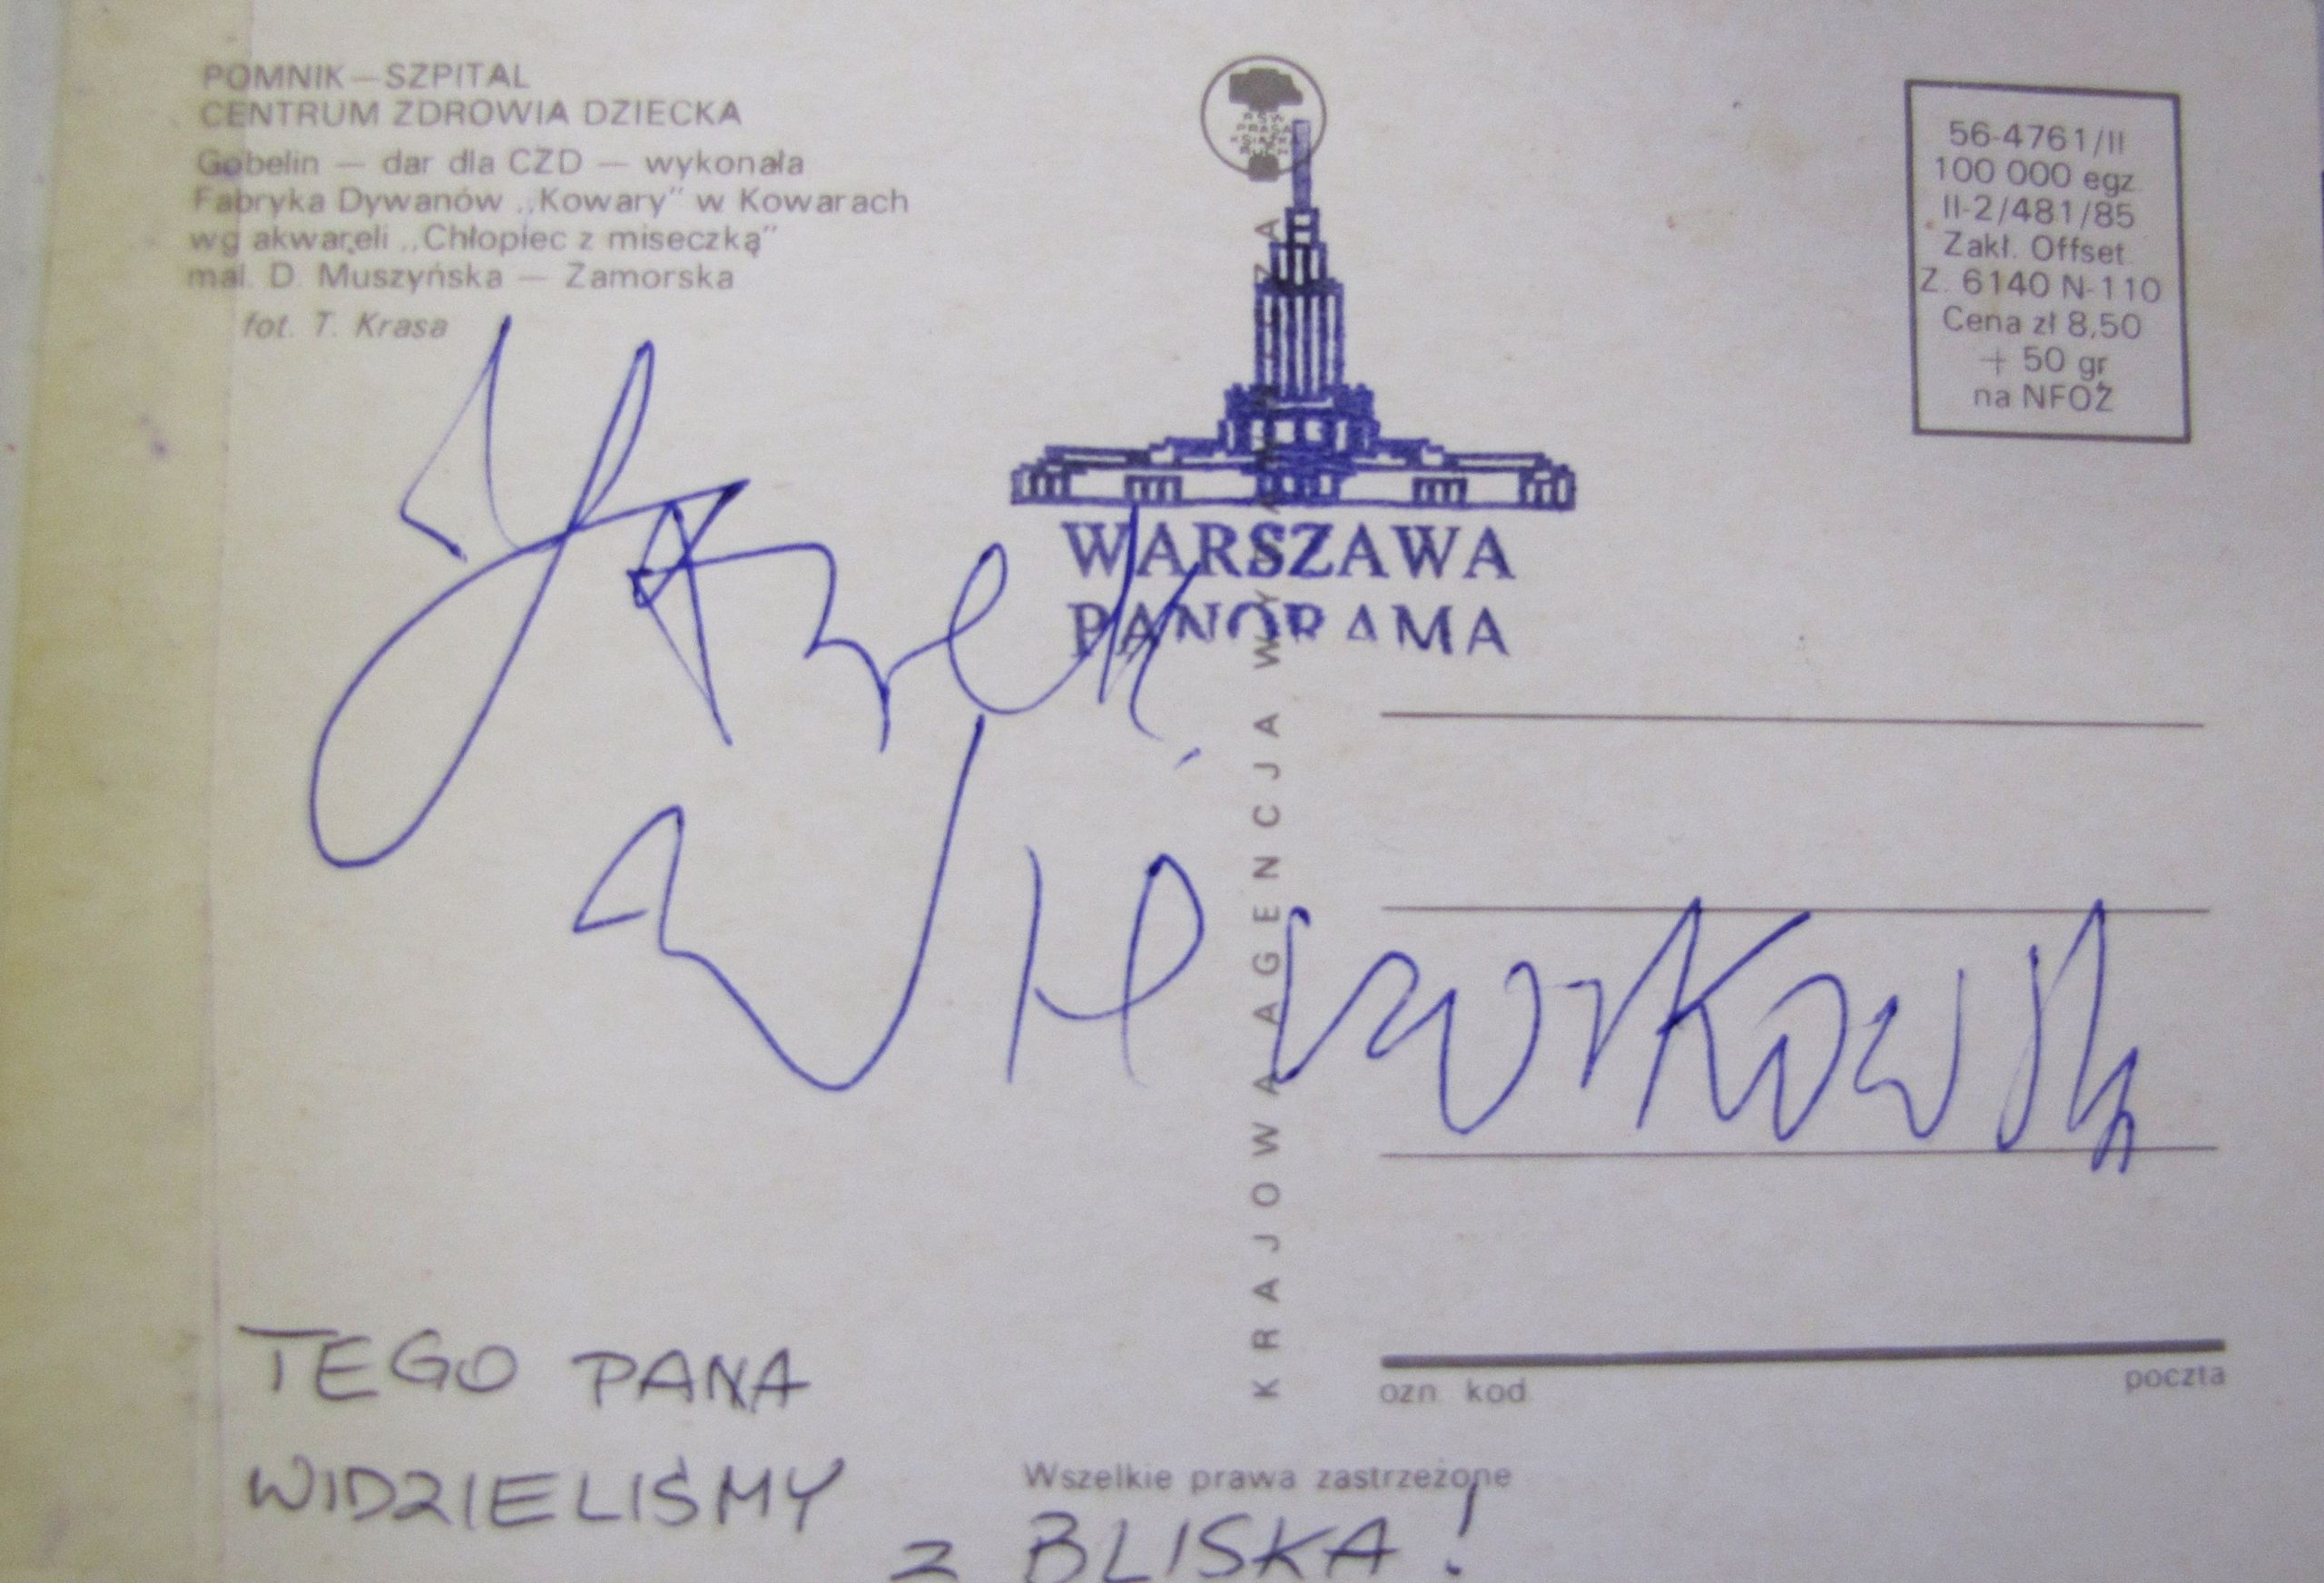 POMNIK—SZPITAL
CENTRUM ZDROWIA DZIECKA
Gobelin — dar dla CZD — wykonała
Fabryka Dywanów „Kowary" w Kowarach
wg akwareli „Chłopiec z miseczką"
mal. D. Muszyńska — Zamorska
fot. T. Krasa
56-4761/II
100 000 egz.
II-2/481/85
Zakł. Offset
Z. 6140 N-110
Cena zł 8,50
+ 50 gr
na NFOZ
WARSZAWA
PANORAMA
KRAJOWA AGENCJA WYDAWNICZA
Jacek
ozn. kod
poczta
TEGO PANA
WIDZIELIŚMY
Wszelkie prawa zastrzeżone
z BLISKA!